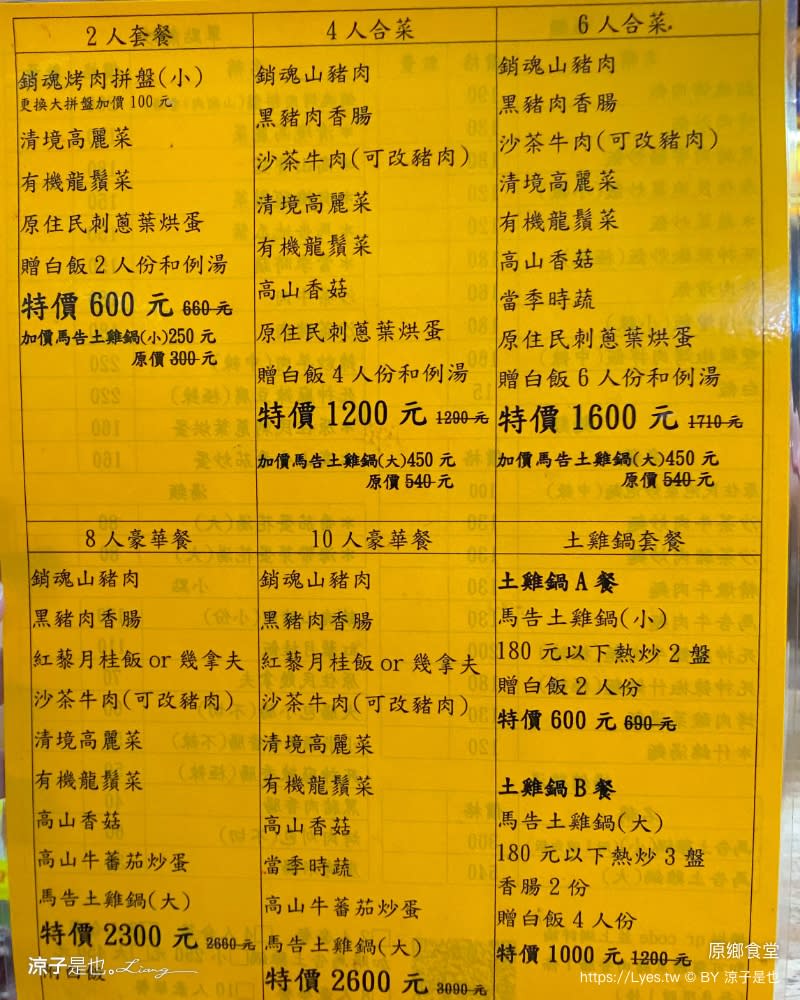 2人套餐
銷魂烤肉拼盤(小)
更換大拼盤加價100元
清境高麗菜
有機龍鬚菜
原住民刺蔥葉烘蛋
贈白飯2人份和例湯
特價 600 元 660 元
加價馬告土雞鍋(小)250 元
原價 300 元
4人合菜
銷魂山豬肉
黑豬肉香腸
沙茶牛肉(可改豬肉)
清境高麗菜
有機龍鬚菜
高山香菇
原住民刺蔥葉烘蛋
贈白飯4人份和例湯
特價 1200 元 1290 元
加價馬告土雞鍋(大)450 元
原價 540 元
6人合菜
銷魂山豬肉
黑豬肉香腸
沙茶牛肉(可改豬肉)
清境高麗菜
有機龍鬚菜
高山香菇
當季時蔬
原住民刺蔥葉烘蛋
贈白飯6人份和例湯
特價 1600 元 1710 元
加價馬告土雞鍋(大)450 元
原價 540 元
8人豪華餐
銷魂山豬肉
黑豬肉香腸
紅藜月桂飯 or 幾拿夫
沙茶牛肉(可改豬肉)
清境高麗菜
有機龍鬚菜
高山香菇
高山牛蕃茄炒蛋
馬告土雞鍋(大)
特價 2300 元 2660 元
10人豪華餐
銷魂山豬肉
黑豬肉香腸
紅藜月桂飯 or 幾拿夫
沙茶牛肉(可改豬肉)
清境高麗菜
有機龍鬚菜
高山香菇
當季時蔬
高山牛蕃茄炒蛋
馬告土雞鍋(大)
特價 2600 元 3090 元
土雞鍋套餐
土雞鍋A餐
馬告土雞鍋(小)
180元以下熱炒2盤
贈白飯2人份
特價 600 元 690 元
土雞鍋B餐
馬告土雞鍋(大)
180元以下熱炒3盤
香腸2份
贈白飯4人份
特價 1000 元 1200 元
涼子是也。Liang
原鄉食堂
https://Lyes.tw © BY 涼子是也